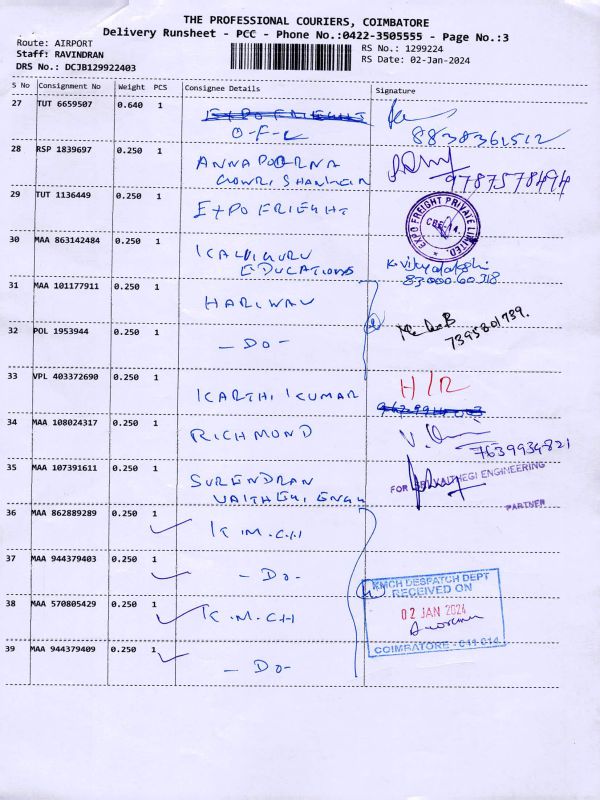 THE PROFESSIONAL COURIERS, COIMBATORE
Delivery Runsheet - PCC - Phone No.:0422-3505555 - Page No.:3
Route: AIRPORT
Staff: RAVINDRAN
DRS No.: DCJB129922403
RS No.: 1299224
RS Date: 02-Jan-2024
S No Consignment No Weight PCS Consignee Details Signature
27 TUT 6659507 0.640 1 EXPO FREIGHT
O-F-L
8838361512
28 RSP 1839697 0.250 1 ANNAPOORNA
GOWRI SHANKAR
9787578494
29 TUT 1136449 0.250 1 EXPO FRIEGHT
EXPO FREIGHT PRIVATE LIMITED.
30 MAA 863142484 0.250 1 KALVIGURU
EDUCATIONS
K. Vijayalakshmi
83000 60318
31 MAA 101177911 0.250 1
32 POL 1953944 0.250 1 - DO -
7395801739.
33 VPL 403372690 0.250 1 KARTHI KUMAR H/R
34 MAA 108024317 0.250 1 RICHMOND
7639934821
35 MAA 107391611 0.250 1 SURENDRAN
VAITHEGI, ENGG
FOR SRI VAITHEGI ENGINEERING
PARTNER
36 MAA 862889289 0.250 1 K.M.C.H
37 MAA 944379403 0.250 1 - DO -
38 MAA 570805429 0.250 1 K.M.C.H
39 MAA 944379409 0.250 1 - DO -
KMCH DESPATCH DEPT
RECEIVED ON
02 JAN 2024
COIMBATORE - 641 014.